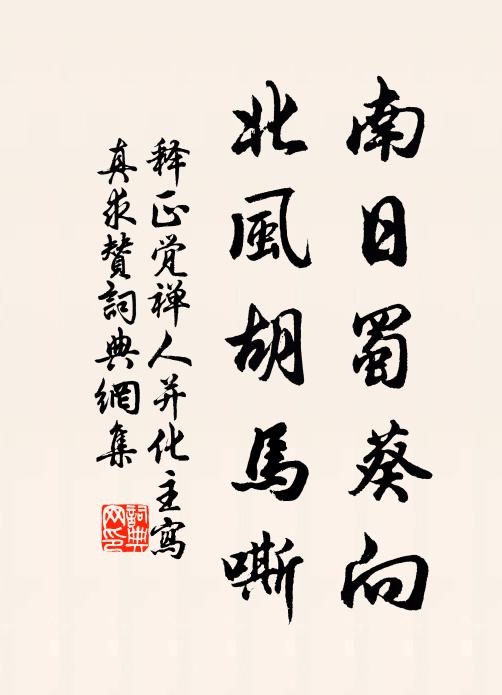 南日蜀葵向
北風胡馬嘶
释正觉禅人并化主寫
真求赞詞典網集
詞典网印